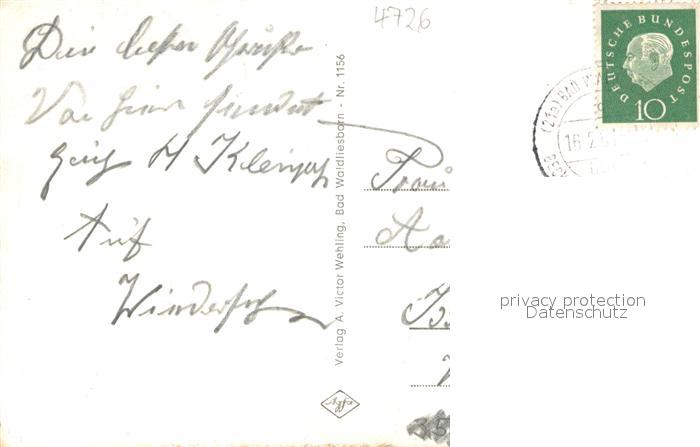 4726
Die besten Grüße
Von hier sendet
Euch H Klein
Auf
Wiedersehn
Verlag A. Victor Wehling, Bad Waldliesborn - Nr. 1156
Agfa
DEUTSCHE BUNDESPOST
10
(21a) BAD W
16.2.6
BEC
privacy protection
Datenschutz